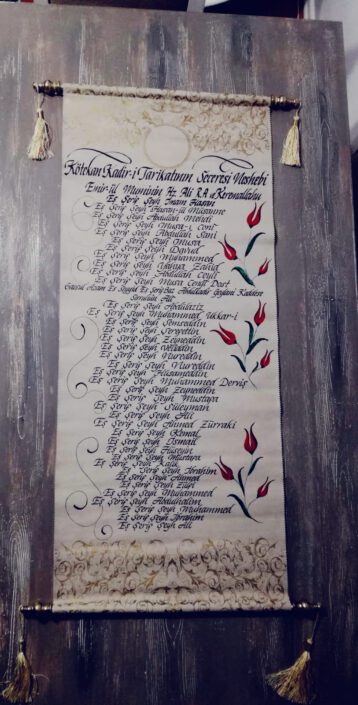 Kötekan Kadir-i Tarikatının Şeceresi Neshebi
Emir-ül Muminin Hz. Ali R.A. Keremallahu
Eş Şerif Şeyh İmam Hasan
Eş Şerif Şeyh Hasan-ül Müsanne
Eş Şerif Şeyh Abdullah Mehdi
Eş Şerif Şeyh Musa-i Conf
Eş Şerif Şeyh Abdullah Sani
Eş Şerif Şeyh Musa
Eş Şerif Şeyh Davud
Eş Şerif Şeyh Muhammed
Eş Şerif Şeyh Yahya Zahid
Eş Şerif Şeyh Abdullah Ceyli
Eş Şerif Şeyh Musa Cengi Dost
Gavsul Azam Es Seyyid Eş Şeyh Hz. Abdülkadir Geylani Kaddese
Sırruhul Ali
Eş Şerif Şeyh Abdülaziz
Eş Şerif Şeyh Muhammed Ukkar-i
Eş Şerif Şeyh Şemseddin
Eş Şerif Şeyh Şerefettin
Eş Şerif Şeyh Zeyneddin
Eş Şerif Şeyh Veliddin
Eş Şerif Şeyh Nureddin
Eş Şerif Şeyh Nureddin
Eş Şerif Şeyh Hüsameddin
Eş Şerif Şeyh Muhammed Derviş
Eş Şerif Şeyh Zeyneddin
Eş Şerif Şeyh Mustafa
Eş Şerif Şeyh Süleyman
Eş Şerif Şeyh Ali
Eş Şerif Şeyh Ahmed Zürraki
Eş Şerif Şeyh Kemal
Eş Şerif Şeyh İsmail
Eş Şerif Şeyh Hüseyin
Eş Şerif Şeyh Mustafa
Eş Şerif Şeyh Kalik
Eş Şerif Şeyh İbrahim
Eş Şerif Şeyh Ahmed
Eş Şerif Şeyh Elifi
Eş Şerif Şeyh Muhammed
Eş Şerif Şeyh Abdülhalim
Eş Şerif Şeyh Muhammed
Eş Şerif Şeyh İbrahim
Eş Şerif Şeyh Ali